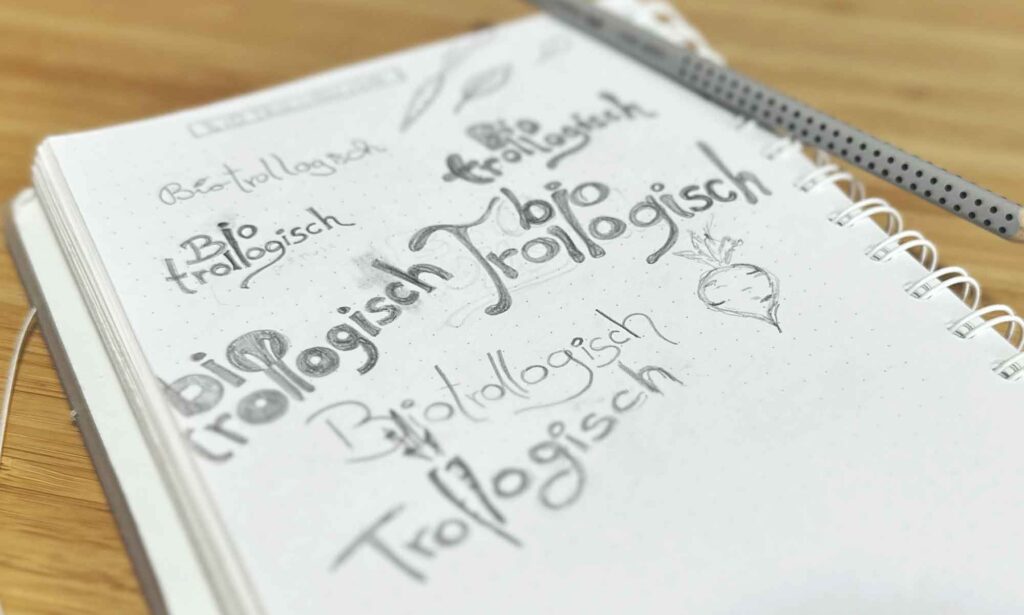 Bio-trollogisch
Bio
trollogisch
Bio
trollogisch
bio
Trollogisch
bio
trollogisch
Biotrollogisch
Trollogisch